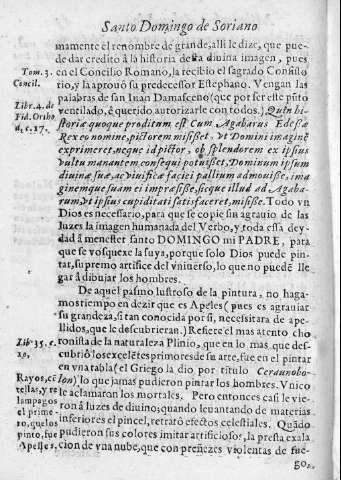 Santo Domingo de Soriano
mamente el renombre de grande, alli le dize, que pue-
de dar credito à la historia desta divina imagen, pues
Tom. 3. Concil.
en el Concilio Romano, la recibio el sagrado Consisto
rio, y la aprouò su predecessor Estephano. Vengan las
Libr. 4. de Fid. Ortho d. c. 17.
palabras de san Iuan Damasceno (que por ser este pũto
ventilado, è querido autorizarle con todos.) Quin his-
toriæ quoque proditum est Cum, Agabarus Edessæ
Rex eo nomine, pictorem misisset, vt Domini imaginẽ
exprimeret, neque id pictor, ob splendorem ex ipsius
vultu manantem consequi potuisset, Dominum ipsum
diuinæ suæ, ac viuificæ faciei pallium admouisse, ima
ginemque suam ei impræsisse, sicque illud ad, Agaba-
rum, vt ipsius cupiditati satisfaceret, misisse. Todo vn
Dios es necessario, para que se copie sin agrauio de las
luzes la imagen humanada del Verbo, y toda essa dey-
dad à menester santo DOMINGO mi PADRE, para
que se vosquexe la suya, porque solo Dios puede pin-
tar, su premo artifice del vniuerso, lo que no puedẽ lle
gar à dibujar los hombres.
De aquel pasmo lustroso de la pintura, no haga-
mos tiempo en dezir que es Apeles (pues es agrauiar
su grandeza, si tan conocida por si, necessitara de ape-
llidos, que le descubrieran.) Refiere el mas atento cho
Lib. 35. c. 20.
ronista de la naturaleza Plinio, que en lo mas que des-
cubriò los excelẽtes primores de su arte, fue en el pintar
en vna tabla (el Griego la dio por titulo Ceraunobo-
Rayos, cẽ tellas, y re lampagos el prime ro, que los pinto, fue Apelles,
lon) lo que jamas pudieron pintar los hombres. Vnico
le aclamaron los mortales. Pero entonces casi le vie-
ron à luzes de diuino, quando leuantando de materias
inferiores el pincel, retratò efectos celestiales. Quãdo
pudieron sus colores imitar artificiosos, la presta exala
cion de vna nube, que con preñezes violentas de fue-
go,